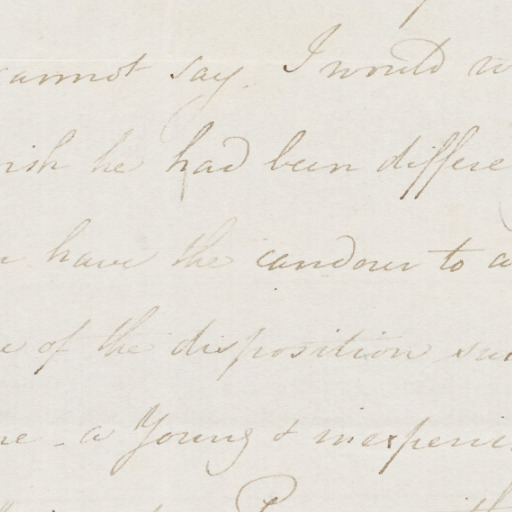 cannot say. I would w
ish he had been differe
have the candour to a
of the disposition suc
me - a Young & inexperie